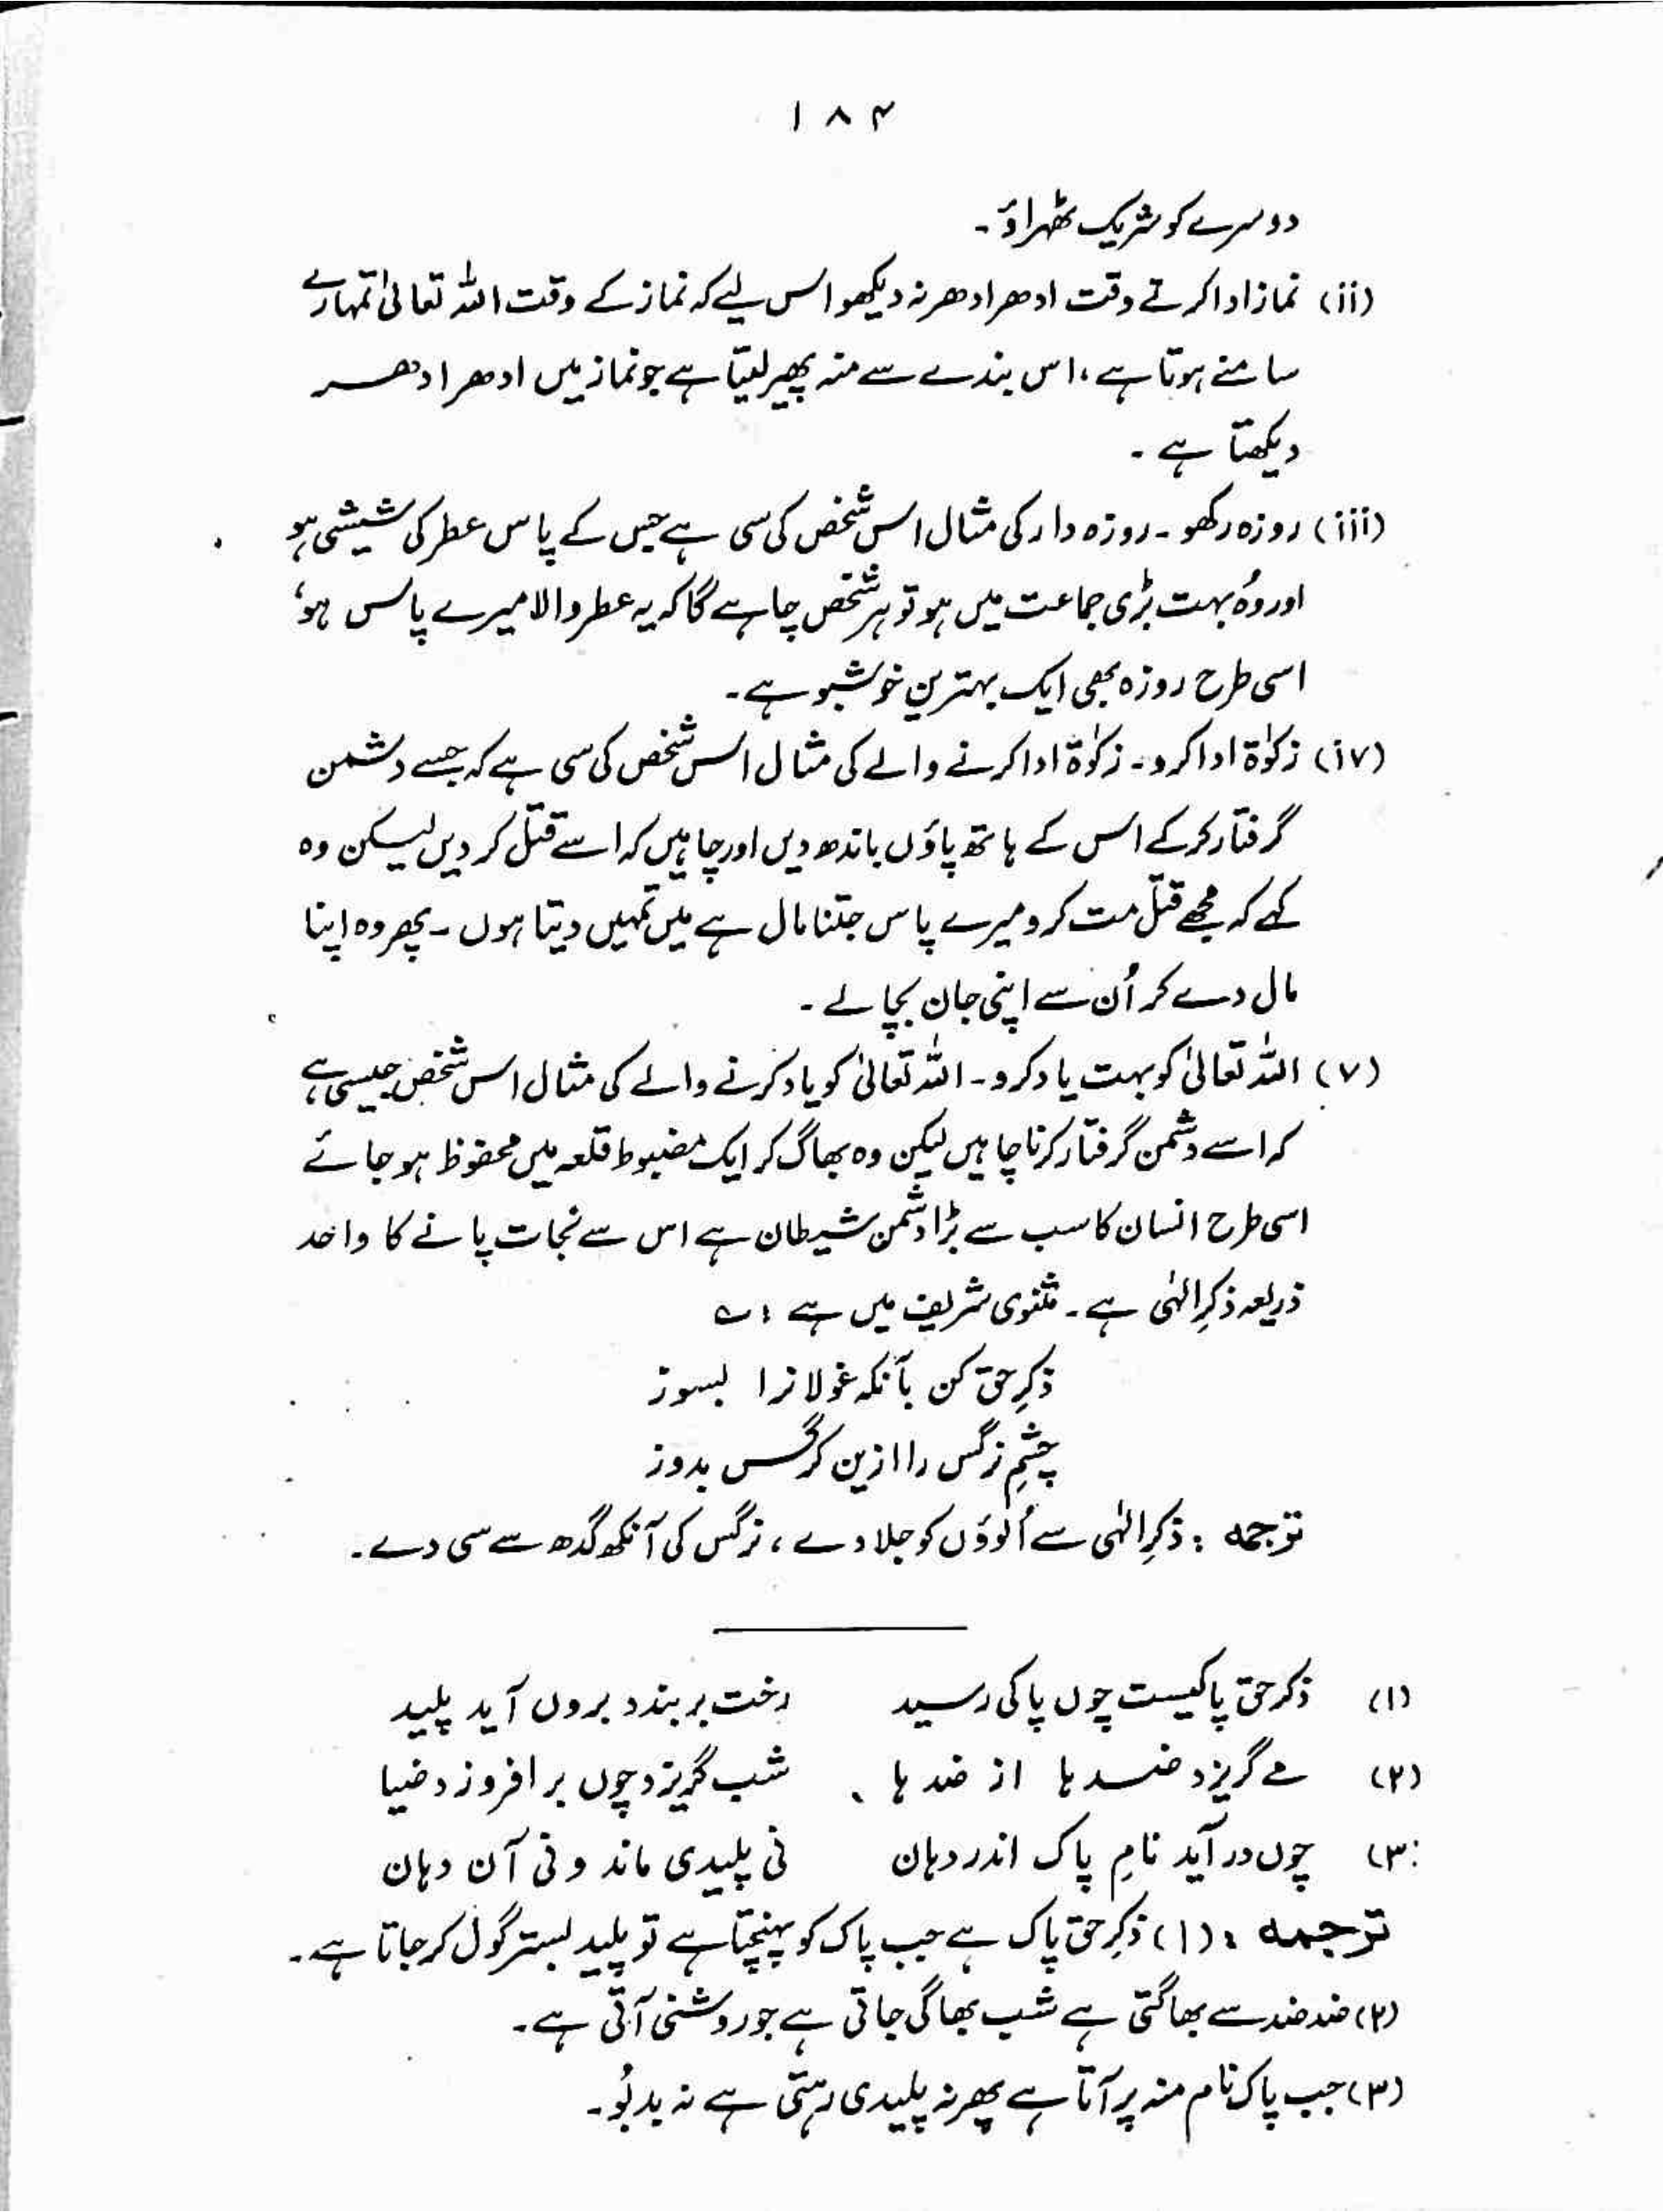 ۱۸۴
دوسرے کو شریک ٹھہراؤ۔
(ii) نماز ادا کرتے وقت ادھر ادھر نہ دیکھو اس لیے کہ نماز کے وقت اللہ تعالیٰ تمہارے
سامنے ہوتا ہے، اس بندے سے منہ پھیر لیتا ہے جو نماز میں ادھر ادھر
دیکھتا ہے۔
(iii) روزہ رکھو۔ روزہ دار کی مثال اس شخص کی سی ہے جس کے پاس عطر کی شیشی ہو
اور وُہ بہت بڑی جماعت میں ہو تو ہر شخص چاہے گا کہ یہ عطر والا میرے پاس ہو،
اسی طرح روزہ بھی ایک بہترین خوشبو ہے۔
(iv) زکوٰۃ ادا کرو۔ زکوٰۃ ادا کرنے والے کی مثال اس شخص کی سی ہے کہ جسے دشمن
گرفتار کر کے اس کے ہاتھ پاؤں باندھ دیں اور چاہیں کہ اسے قتل کر دیں لیکن وہ
کہے کہ مجھے قتل مت کرو میرے پاس جتنا مال ہے میں تمہیں دیتا ہوں۔ پھر وہ اپنا
مال دے کر اُن سے اپنی جان بچا لے۔
(v) اللہ تعالیٰ کو بہت یاد کرو۔ اللہ تعالیٰ کو یاد کرنے والے کی مثال اس شخص جیسی ہے
کہ اسے دشمن گرفتار کرنا چاہیں لیکن وہ بھاگ کر ایک مضبوط قلعہ میں محفوظ ہو جائے
اسی طرح انسان کا سب سے بڑا دشمن شیطان ہے اس سے نجات پانے کا واحد
ذریعہ ذکرِ الٰہی ہے۔ مثنوی شریف میں ہے : ؎
ذکرِ حق کن بآنکہ غولانرا بسوز
چشمِ نرگس را ازین کرگس بدوز
ترجمہ : ذکرِ الٰہی سے اُلوؤں کو جلا دے، نرگس کی آنکھ گدھ سے سی دے۔
(۱) ذکر حق پاکیست چوں پاکی رسید رخت بر بندد بروں آید پلید
(۲) مے گریزد ضدہا از ضدہا، شب گریزد چوں بر افروزد ضیا
(۳) چوں در آید نامِ پاک اندر دہان نی پلیدی ماند و نی آن دہان
ترجمہ : (۱) ذکرِ حق پاک ہے جب پاک کو پہنچتا ہے تو پلید بستر گول کر جاتا ہے۔
(۲) ضد ضد سے بھاگتی ہے شب بھاگی جاتی ہے جو روشنی آتی ہے۔
(۳) جب پاک نام منہ پر آتا ہے پھر نہ پلیدی رہتی ہے نہ بدبُو۔